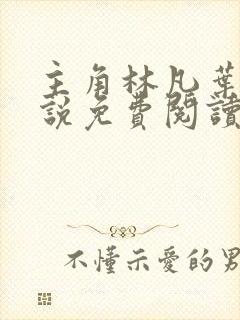 主角林凡葉
說免費閱讀
不懂示愛的男